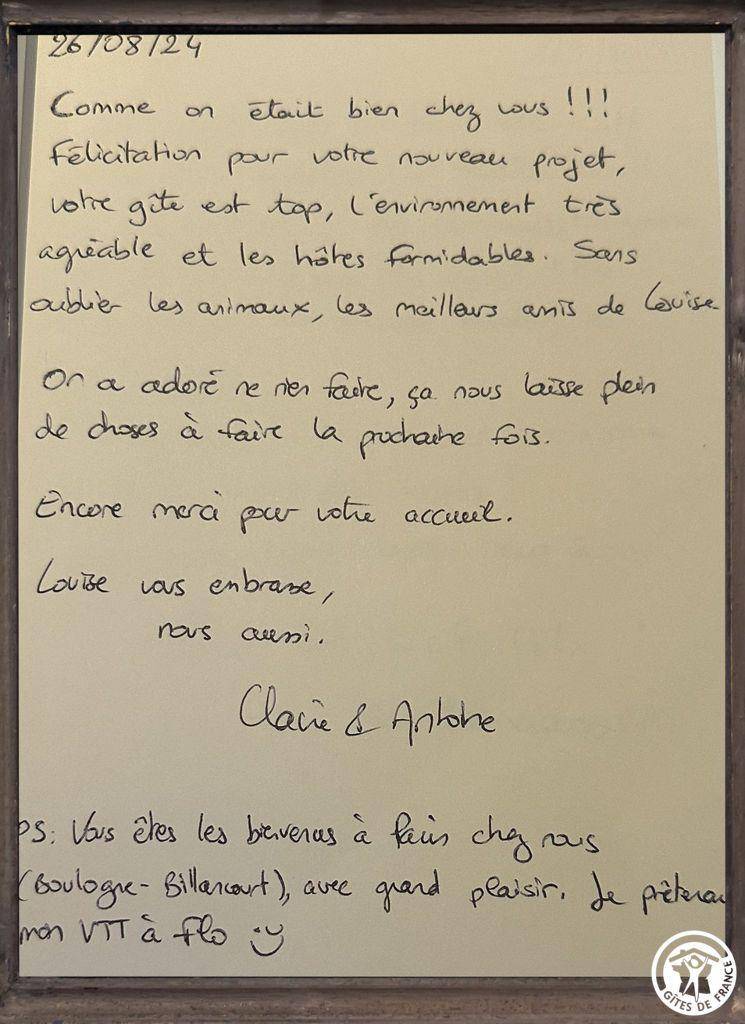 26/08/24
Comme on était bien chez vous !!!
Félicitation pour votre nouveau projet,
votre gîte est top, l'environnement très
agréable et les hôtes formidables. Sans
oublier les animaux, les meilleurs amis de Louise
On a adoré ne rien faire, ça nous laisse plein
de choses à faire la prochaine fois.
Encore merci pour votre accueil.
Louise vous embrasse,
nous aussi.
Claire & Antoine
PS: Vous êtes les bienvenus à Paris chez nous
(Boulogne-Billancourt), avec grand plaisir. Je prêterai
mon VTT à Flo :)
GÎTES DE FRANCE